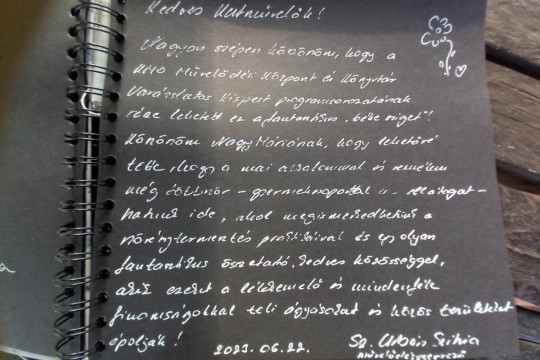 Kedves Kertművelők!
Nagyon szépen köszönöm, hogy a
KMO Művelődési Központ és Könyvtár
Varázslatos Kispest programsorozatának
része lehetett ez a fantasztikus "béke sziget"!
Köszönöm Nagy Máriának, hogy lehetővé
tette, hogy a mai alkalommal és remélem
még többször - gyermekcsoporttal is - ellátogat-
hatunk ide, ahol megismerkedhetünk a
növénytermesztés praktikáival és egy olyan
fantasztikus összetartó, kedves közösséggel,
akik ezeket a lélekemelő és mindenféle
finomságokkal teli ágyásokat és közös területeket
ápolják!
2023.06.22.
Sz. Urbán Szilvia
művelődésszervező